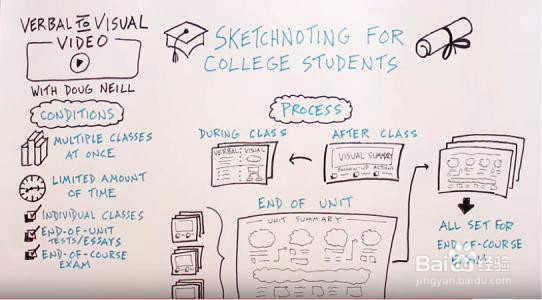 VERBAL TO VISUAL
VIDEO
WITH DOUG NEILL
SKETCHNOTING FOR
COLLEGE STUDENTS
CONDITIONS
MULTIPLE CLASSES
AT ONCE
LIMITED AMOUNT
OF TIME
INDIVIDUAL CLASSES
END-OF-UNIT
TESTS/ESSAYS
END-OF-COURSE
EXAM
PROCESS
DURING CLASS
VERBAL: VISUAL
AFTER CLASS
VISUAL SUMMARY
FOLLOW-UP ACTIONS
END OF UNIT
UNIT SUMMARY
ALL SET FOR
END-OF-COURSE
EXAM
Baidu 经验
jingyan.baidu.com